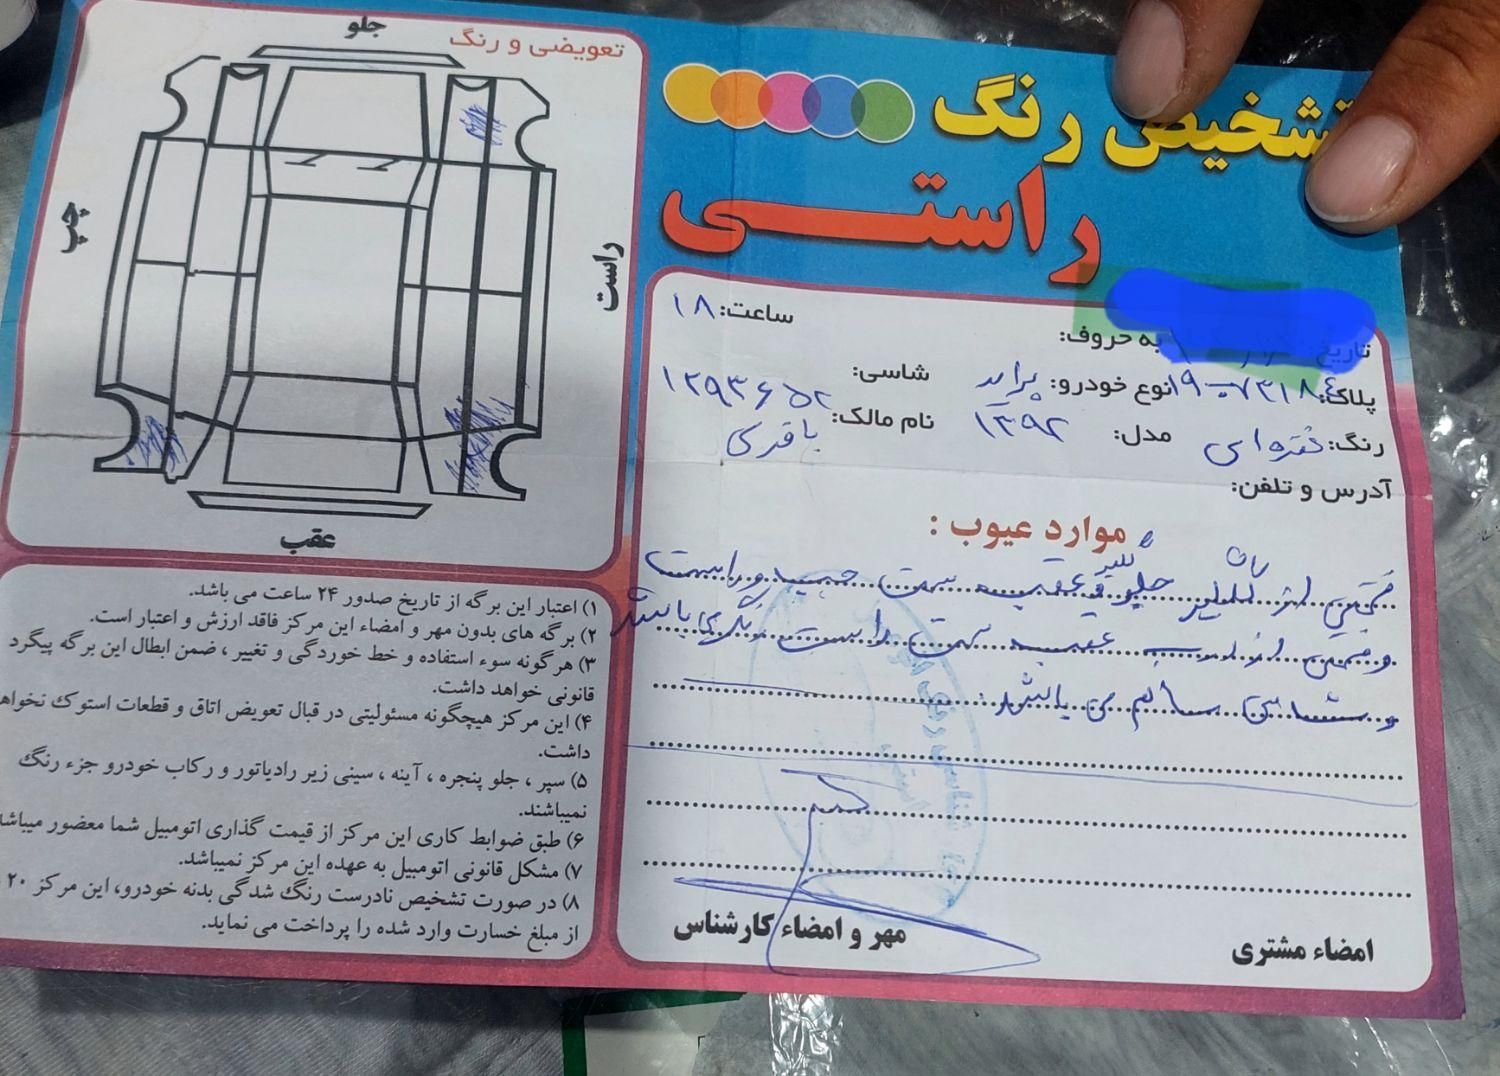 تشخیص رنگ
راستی
تاریخ:
به حروف:
ساعت: ۱۸
پلاک:
نوع خودرو: پراید
شاسی: ۱۲۹۳۶۵۲
رنگ: نقره‌ای
مدل: ۱۳۹۲
نام مالک: باقری
آدرس و تلفن:
موارد عیوب :
قسمتی از گلگیر جلو و عقب سمت چپ و راست
و قسمتی از درب عقب سمت راست رنگ می‌باشد
و شاسی سالم می باشد.
امضاء مشتری
مهر و امضاء کارشناس
تعویضی و رنگ
جلو
چپ
راست
عقب
۱) اعتبار این برگه از تاریخ صدور ۲۴ ساعت می باشد.
۲) برگه های بدون مهر و امضاء این مرکز فاقد ارزش و اعتبار است.
۳) هرگونه سوء استفاده و خط خوردگی و تغییر ، ضمن ابطال این برگه پیگرد
قانونی خواهد داشت.
۴) این مرکز هیچگونه مسئولیتی در قبال تعویض اتاق و قطعات استوک نخواهد
داشت.
۵) سپر ، جلو پنجره ، آینه ، سینی زیر رادیاتور و رکاب خودرو جزء رنگ
نمیباشند.
۶) طبق ضوابط کاری این مرکز از قیمت گذاری اتومبیل شما معضور میباشد
۷) مشکل قانونی اتومبیل به عهده این مرکز نمیباشد.
۸) در صورت تشخیص نادرست رنگ شدگی بدنه خودرو، این مرکز ۲۰
از مبلغ خسارت وارد شده را پرداخت می نماید.